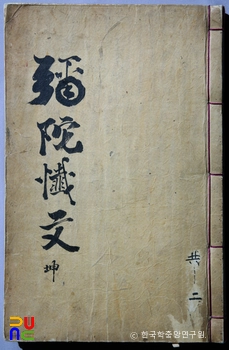 彌陀懺文
坤
共二
© 한국학중앙연구원